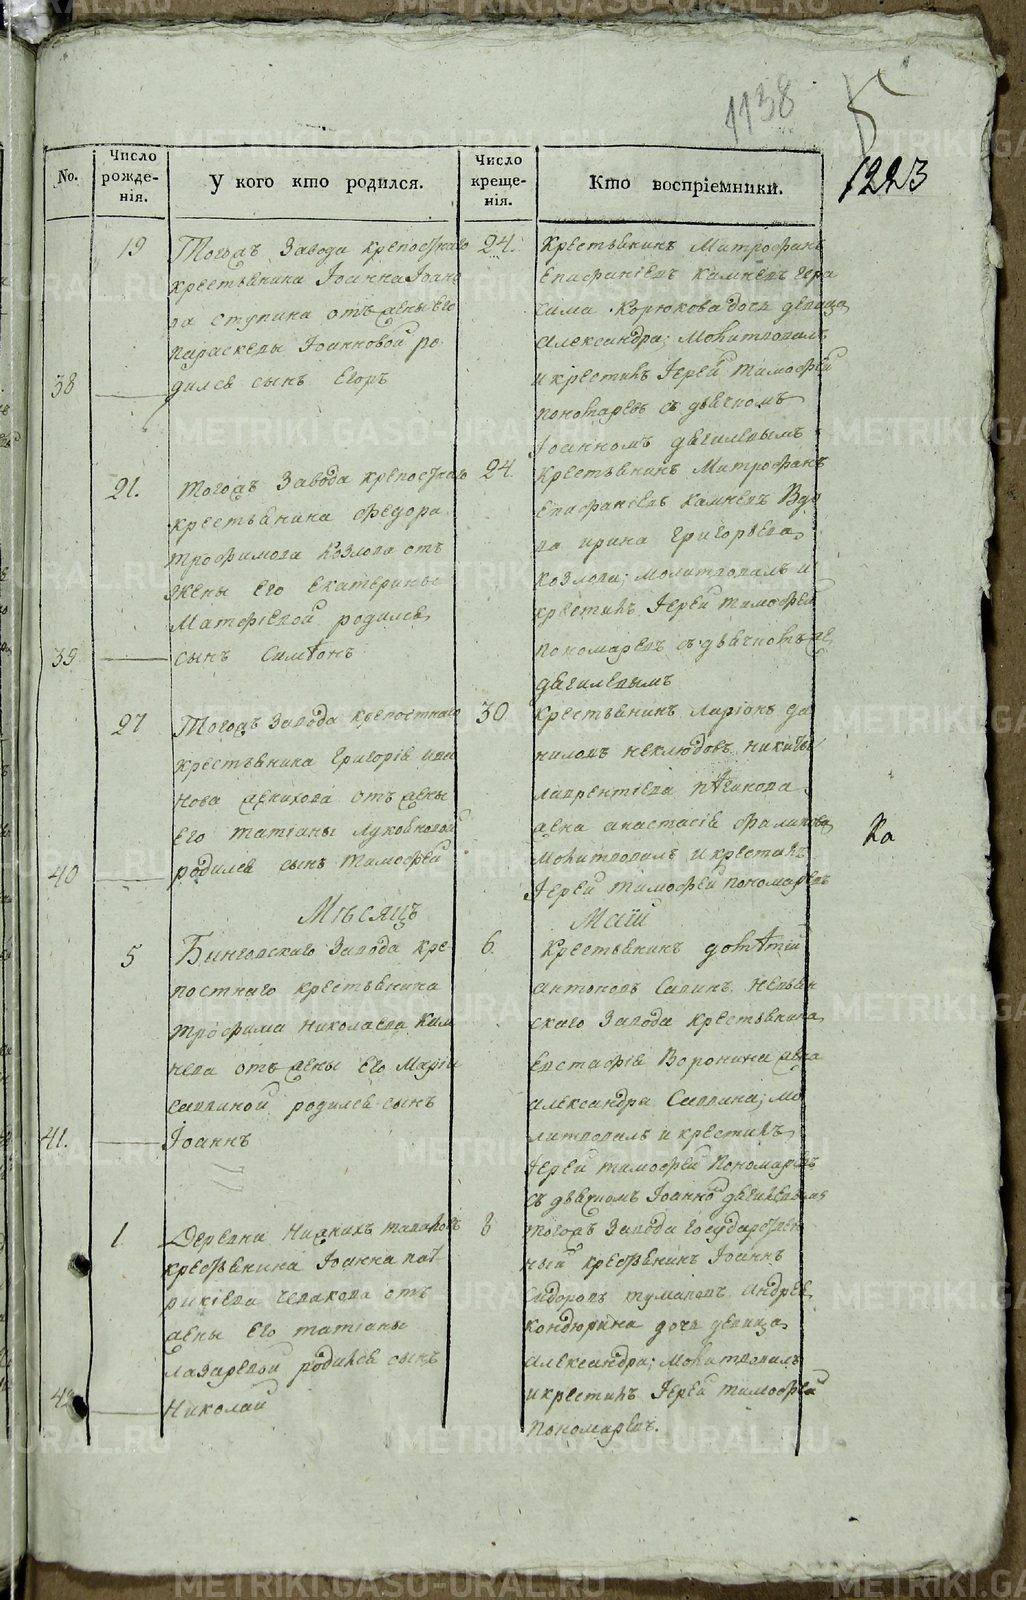 1138
1223
No.
Число рожде-нія.
У кого кто родился.
Число креще-нія.
Кто воспріемники.
19
Тогожъ Завода крепостнаго
крестьянина Іоанна Іоано
ва Ступина отъ жены его
Параскевы Іоанновой ро-
38
дился сынъ Егоръ
24.
Крестьянинъ Митрофанъ
Епифаніевъ Камневъ Гера
сима Корюкова дочь девица
Александра; Молитвовалъ
и крестилъ Іерей Тимофей
Пономаревъ съ дьячкомъ
Іоанномъ
21.
Тогожъ Завода крепостнаго
крестьянина Федора
Трофимова Козлова отъ
жены его Екатерины
Матфіевой родился
39
сынъ Симѣонъ
24.
Крестьянинъ Митрофанъ
Епифаневъ Камневъ Вдо
ва Ирина Григорьева
Козлова; Молитвовалъ и
крестилъ Іерей Тимофей
Пономаревъ съ дьячкомъ
27
Тогожъ Завода крепостнаго
крестьянина Григорія Ива
нова отъ жены
его Татіаны
40
родился сынъ Тимофей
30
Крестьянинъ Ларіонъ Да
ниловъ Неклюдовъ Никиты
Лаврентіева
жена Анастасія
Молитвовалъ и крестилъ
Іерей Тимофей Пономаревъ
Ко
Мѣсяцъ
Маій
5
Бынговскаго Завода кре-
постнаго крестьянина
Трофима Николаева Кам
нева отъ жены его Маріи
Саввиной родился сынъ
41.
Іоаннъ
6.
Крестьянинъ
Антоновъ Савинъ Невьян
скаго Завода крестьянина
Евстафія Воронина жена
Александра Саввина; Мо
литвовалъ и крестилъ
Іерей Тимофей Пономаревъ
съ дьячкомъ
1
Деревни Нижнихъ Таволокъ
крестьянина Іоанна Пат
рикіева отъ
жены его Татіаны
Лазаревой родился сынъ
42
Николай
8
Тогожъ Завода Государствен
ный крестьянинъ Іоаннъ
Сидоровъ Тумановъ Андрея
Кондюрина дочь девица
Александра; Молитвовалъ
и крестилъ Іерей Тимофей
Пономаревъ.
METRIKI.GASO-URAL.RU